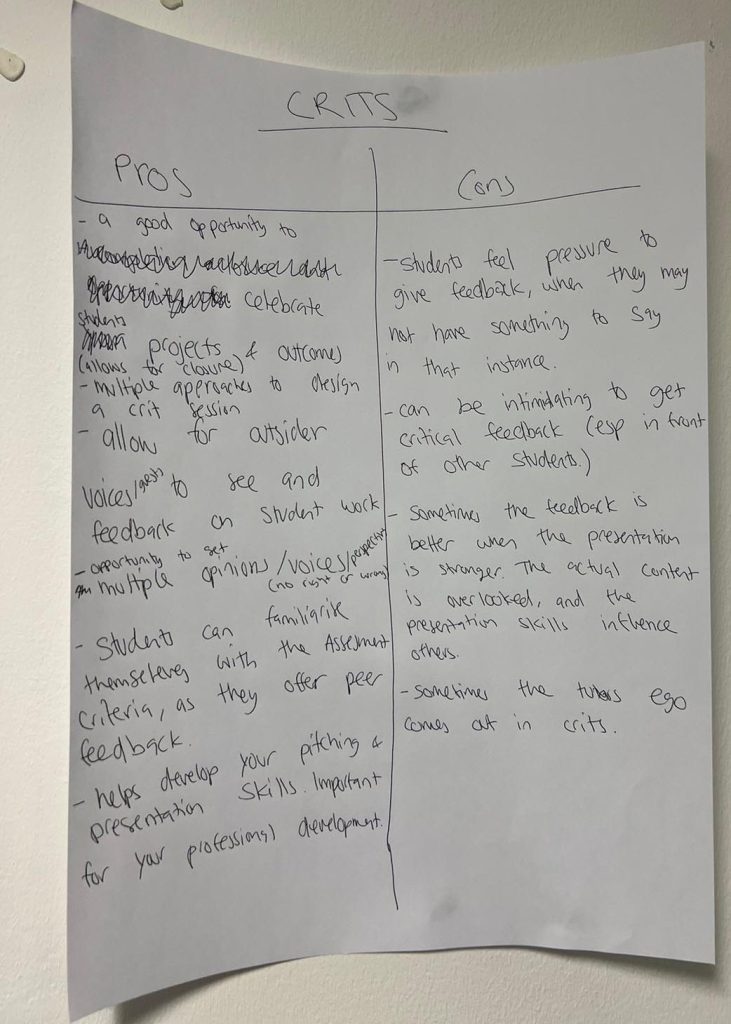 CRITS
Pros
- a good opportunity to
celebrate
students
projects & outcomes
(allows for closure)
- multiple approaches to design
a crit session
- allow for outsider
voices/guests to see and
feedback on student work
- opportunity to get
multiple opinions/voices/perspectives
(no right or wrong)
- Students can familiarike
themselves with the Assesment
criteria, as they offer peer
feedback.
- helps develop your pitching &
presentation skills. Important
for your professional development.
Cons
- Students feel pressure to
give feedback, when they may
not have something to say
in that instance.
- can be intimidating to get
critical feedback (esp in front
of other students.)
- sometimes the feedback is
better when the presentation
is stronger. The actual content
is overlooked, and the
presentation skills influence
others.
- sometimes the tutors ego
comes out in crits.